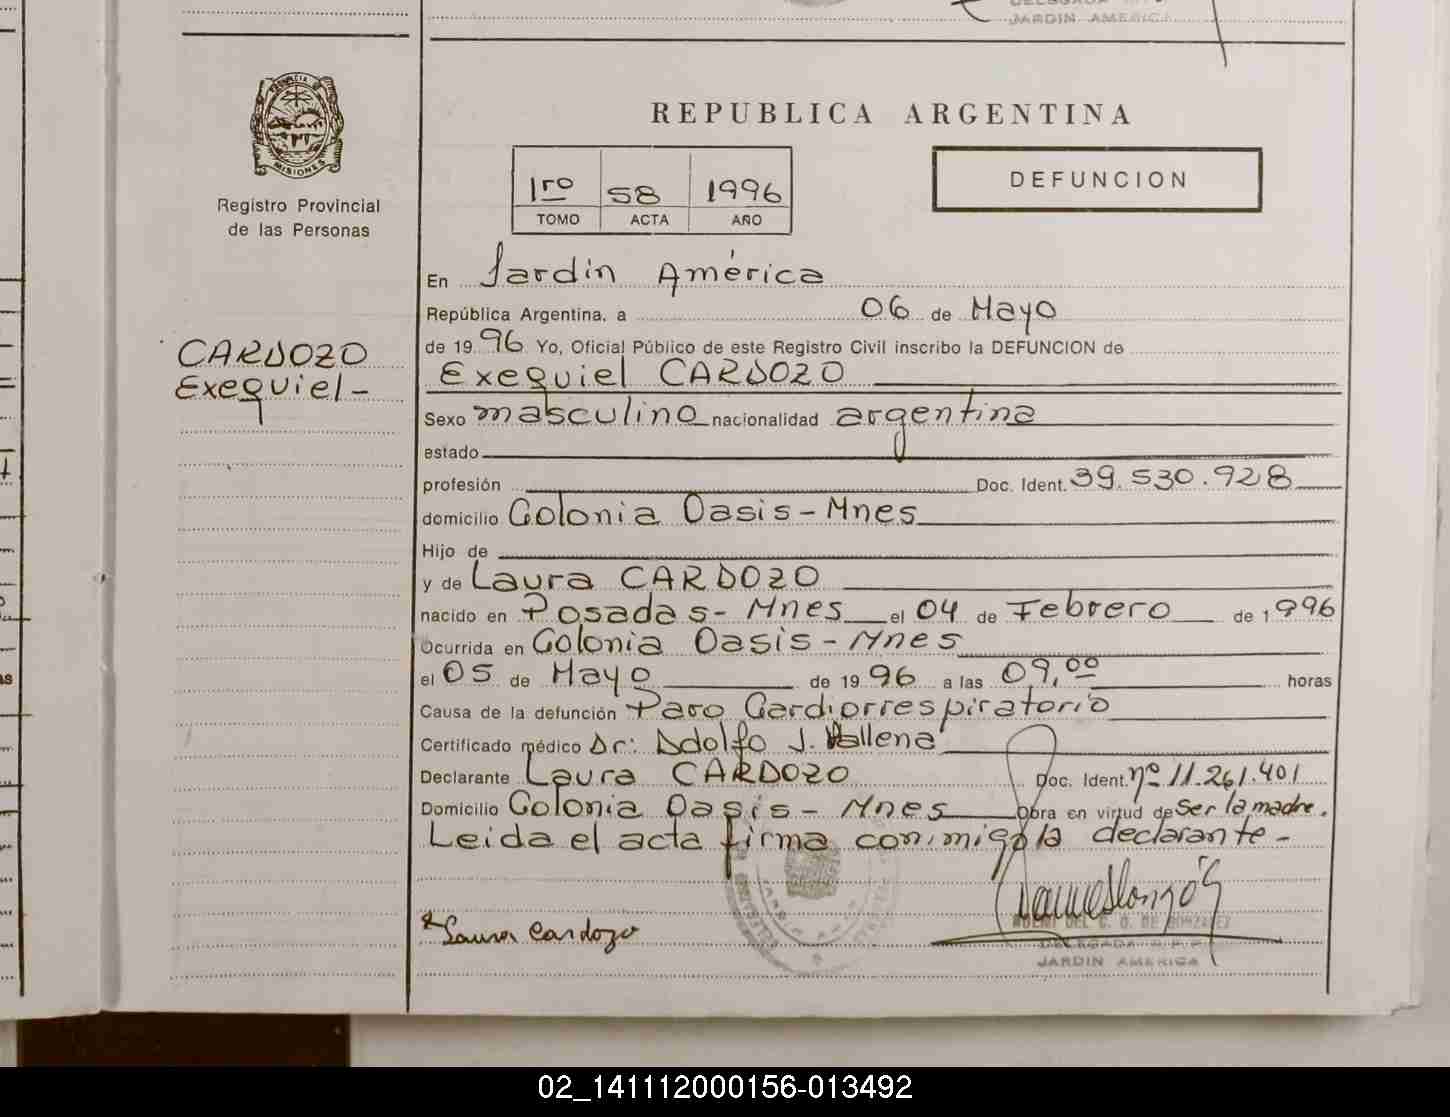 JARDIN AMERICA
REPUBLICA ARGENTINA
1ro 58 1996
TOMO ACTA AÑO
DEFUNCION
PROVINCIA DE
MISIONES
Registro Provincial
de las Personas
CARDOZO
Exequiel-
En Jardín América
República Argentina, a 06 de Mayo
de 1996 Yo, Oficial Público de este Registro Civil inscribo la DEFUNCION de
Exequiel CARDOZO
Sexo masculino nacionalidad argentina
estado
profesión Doc. Ident. 39.530.928
domicilio Colonia Oasis-Mnes
Hijo de
y de Laura CARDOZO
nacido en Posadas-Mnes el 04 de Febrero de 1996
Ocurrida en Colonia Oasis-Mnes
el 05 de Mayo de 1996 a las 09,00 horas
Causa de la defunción Paro Cardiorrespiratorio
Certificado médico Dr: Adolfo J. Vallena
Declarante Laura CARDOZO Doc. Ident. nº 11.261.401
Domicilio Colonia Oasis-Mnes Obra en virtud de Ser la madre.
Leida el acta firma conmigo la declarante-
Laura Cardozo
DEL C. D. DE GONZALEZ
DELEGADA R.P.P.
JARDIN AMERICA
02_141112000156-013492